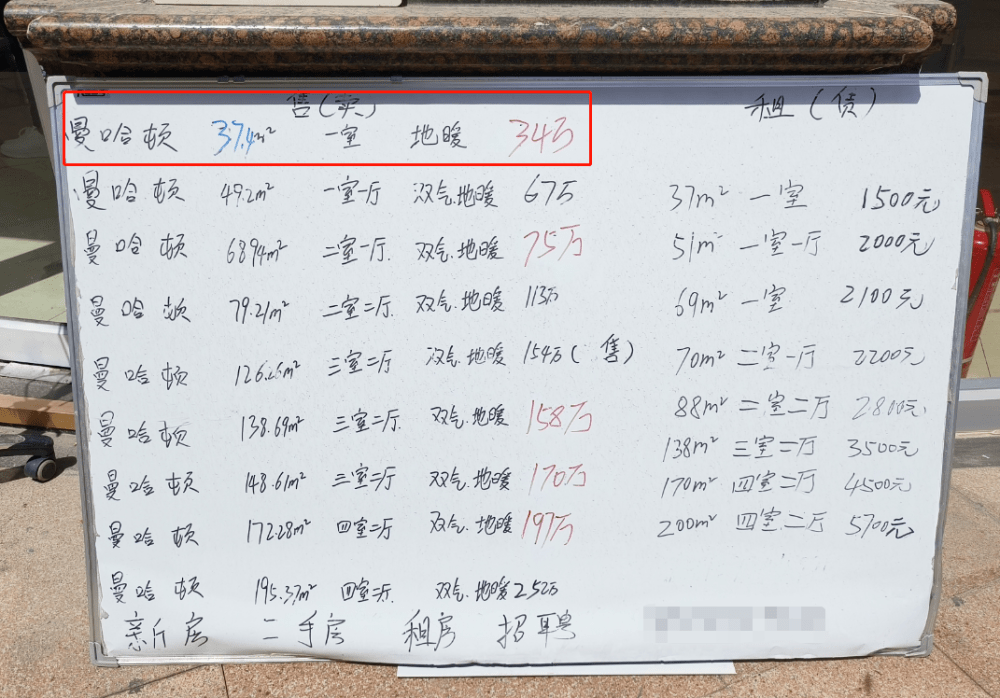 售(卖)
曼哈顿 37.4m² 一室 地暖 34万
曼哈顿 49.2m² 一室一厅 双气.地暖 67万
曼哈顿 68.94m² 二室一厅. 双气.地暖 75万
曼哈顿 79.21m² 二室二厅 双气.地暖 113万
曼哈顿 126.26m² 三室二厅 双气.地暖 154万(售)
曼哈顿 138.69m² 三室二厅. 双气.地暖 158万
曼哈顿 148.61m² 三室二厅 双气.地暖 170万
曼哈顿 172.28m² 四室二厅 双气.地暖 197万
曼哈顿 195.37m² 四室二厅. 双气.地暖 252万
租(赁)
37m² 一室 1500元
51m² 一室一厅 2000元
69m² 一室 2100元
70m² 二室一厅 2200元
88m² 二室二厅 2800元
138m² 三室二厅 3500元
170m² 四室二厅 4500元
200m² 四室二厅 5700元
新房 二手房 租房 招聘